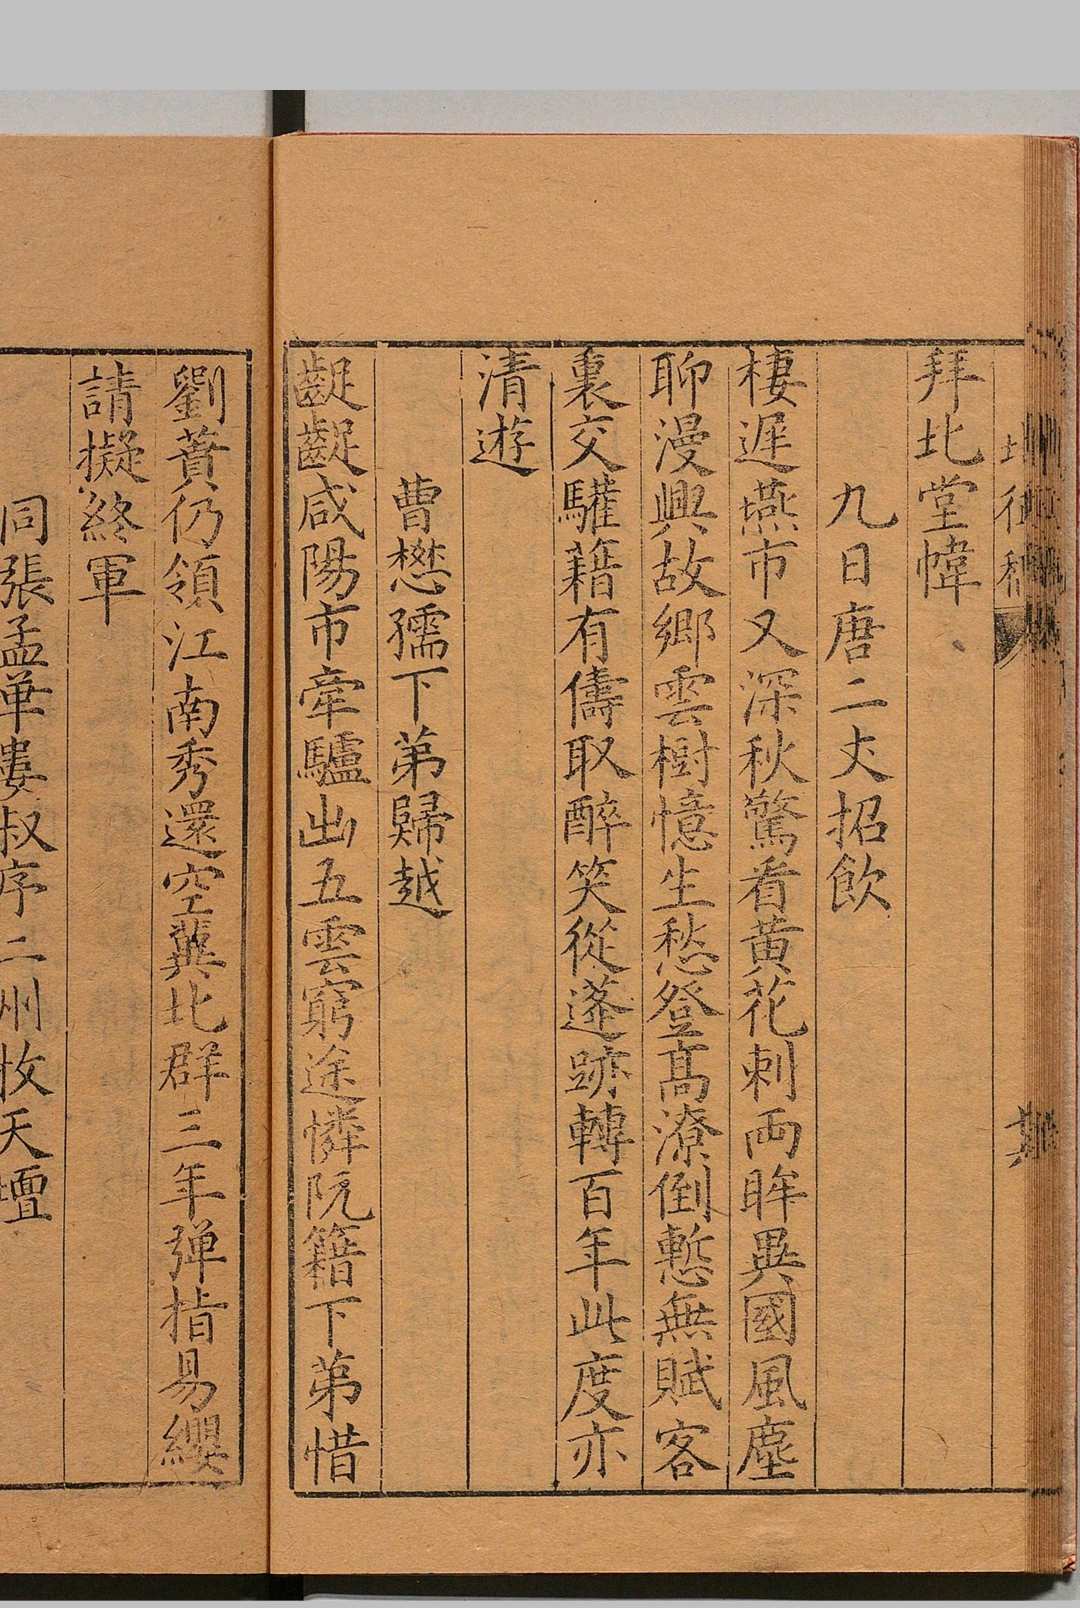 拜北堂幃
九日唐二丈招飲
棲遲燕市又深秋驚看黃花刺兩眸異國風塵
聊漫興故鄉雲樹憶生愁登高潦倒慙無賦客
裏交驩籍有儔取醉笑從蓬跡轉百年此度亦
清遊
曹懋孺下第歸越
齪齪咸陽市牽驢出五雲窮途憐阮籍下第惜
劉蕡仍領江南秀還空冀北群三年彈指易纓
請擬終軍
同張孟華婁叔序二州牧天壇